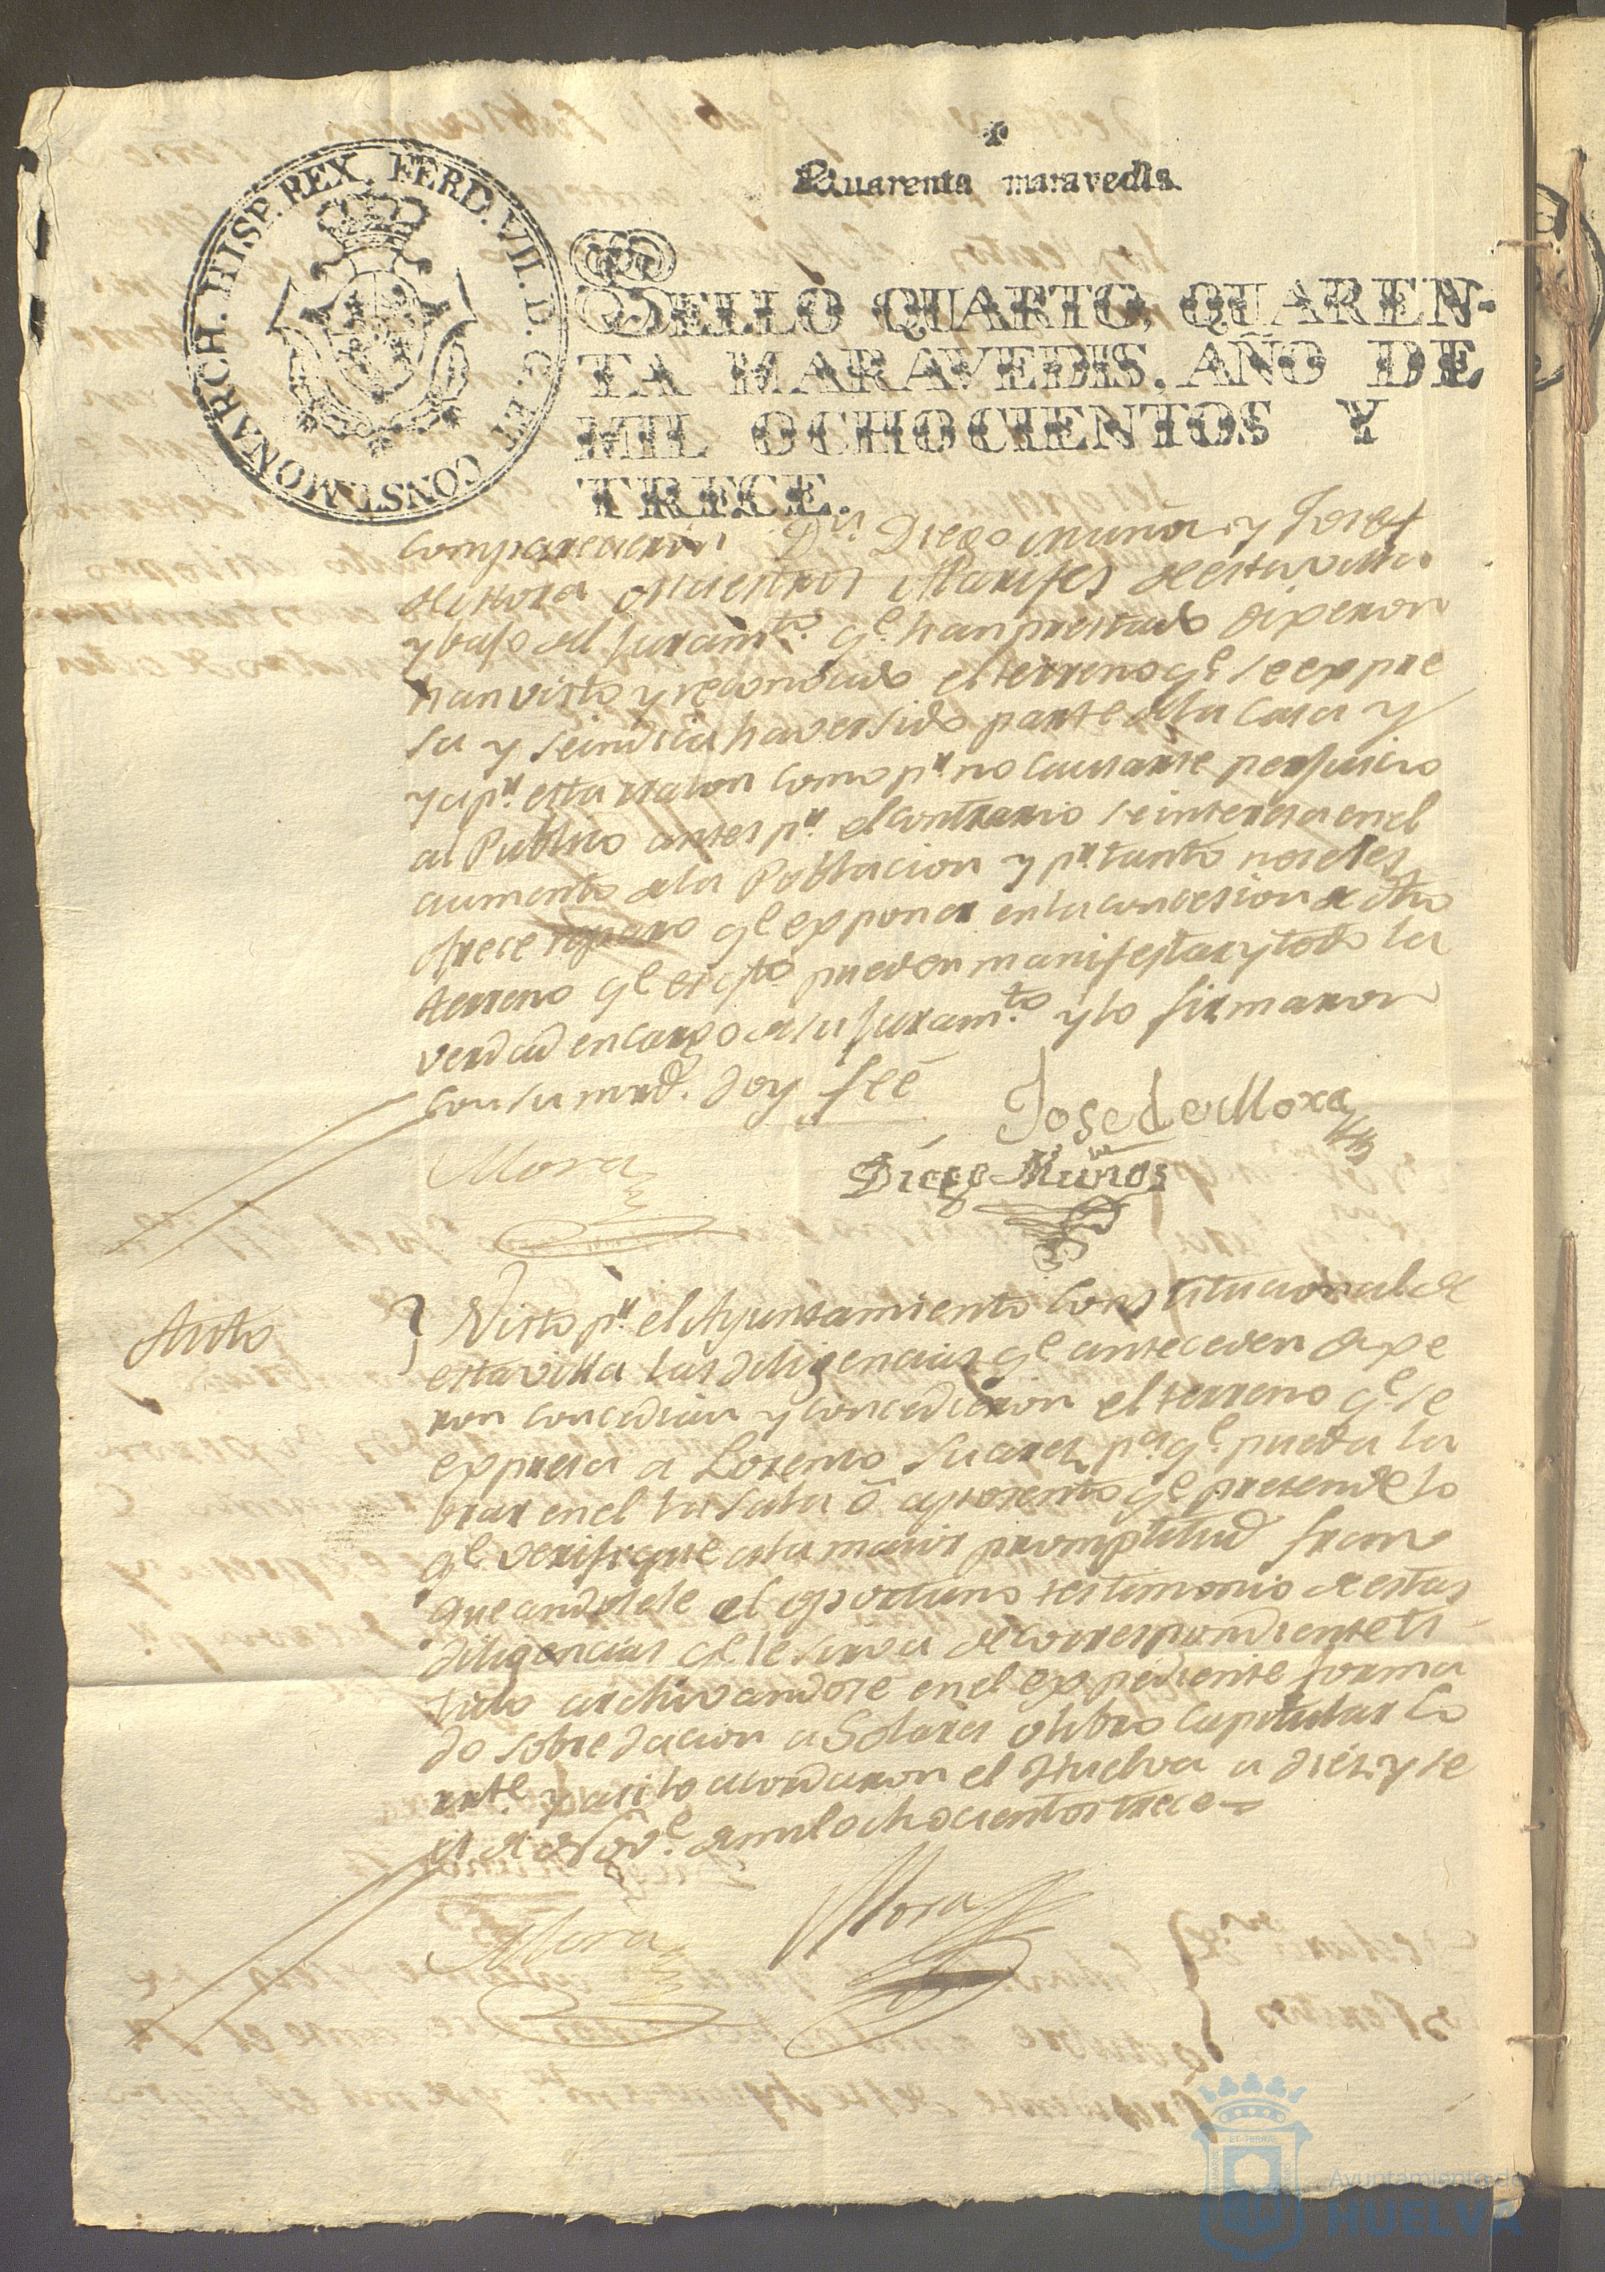 Quarenta maravedis.
FERD. VII. D. G. ET CONST. MONARCH. HISP. REX.
SELLO QUARTO, QUAREN-
TA MARAVEDIS, AÑO DE
MIL OCHOCIENTOS Y
TRECE.
comparecieron Dn. Diego Muñoz y Josef
de Mora Maestros Alarifes de esta villa
y bajo del juramto. qe. han prestado dixeron
han visto y reconocido el terreno qe. se expre
sa y se indica haver sido parte de la casa y
y a pr. esta razon como pr. no causarse perjuicio
al Publico antes pr. el contrario se interesa en el
aumento de la Poblacion y pr. tanto no se les
ofrece reparo qe. exponer en la concesion de dho
terreno qe. es qto pueden manifestar y todo la
verdad en cargo de su juramto. y lo firmaron
con su mrd. doy feé
Jose de Mora
Mora
Diego Muñoz
Auto
Visto pr. el Ayuntamiento Constitucional de
esta villa las diligencias qe. anteceden dixe
ron concedian y concedieron el terreno qe. se
expresa a Lorenzo Suarez pa. qe. pueda la
brar en el la sala ó aposento qe. pretende lo
qe. verifique a la maior promptitud fran
queandosele el oportuno testimonio de estas
diligencias qe. le sirva de correspondiente ti
tulo archivandose en el expediente forma
do sobre dacion a Solares o libro capitular co
rrte. y asi lo acordaron el Huelva a diez y se
is de Nove. de mil ochocientos trece
Mora
Mora
Ayuntamiento de
HUELVA